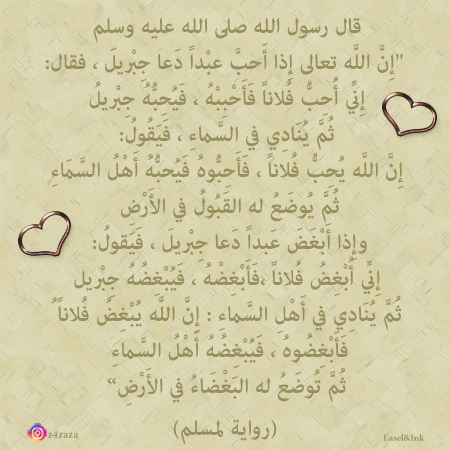 قال رسول الله صلى الله عليه وسلم
"إنَّ اللَّه تعالى إذا أَحبَّ عبْداً دَعا جِبْريلَ ، فقال:
إِنِّي أُحبُّ فُلاناً فَأَحْبِبْهُ ، فَيُحبُّهُ جِبْريلُ
ثُمَّ يُنَادِي في السَّماءِ ، فَيَقُولُ:
إِنَّ اللَّه يُحِبُّ فُلاناً ، فَأَحبُّوهُ فَيُحبُّهُ أَهْلُ السَّمَاءِ
ثُمَّ يُوضَعُ له القَبُولُ في الأَرْضِ
وإذا أَبْغَضَ عَبداً دَعا جِبْريلَ ، فَيَقولُ:
إنِّي أُبْغِضُ فُلاناً ،فَأَبْغِضْهُ ، فَيُبْغِضُهُ جِبْريل
ثُمَّ يُنَادِي في أَهْلِ السَّماءِ : إنَّ اللَّه يُبْغِضُ فُلاناً ُ
فَأَبْغِضُوهُ ، فَيُبْغضُه أَهْلُ السَّماءِ
ثُمَّ تُوضَعُ له البَغْضَاءُ في الأَرْضِ“
(رواية لمسلم)
z4zaza
Easel&Ink